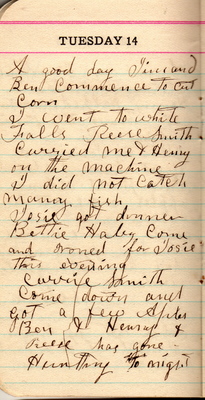 TUESDAY 14
A good day Jim and
Ben Commence to cut
Corn
I went to white
Falls Reese Smith
Carried me & Henry
on the Machine
I did not Catch
Manny fish
Josie got dinner
Bettie Haley Come
and Ironed for Josie
this evening
Carrie Smith
Come down and
got a few Aples
Ben & Henry &
Reese has gone
Hunting to night